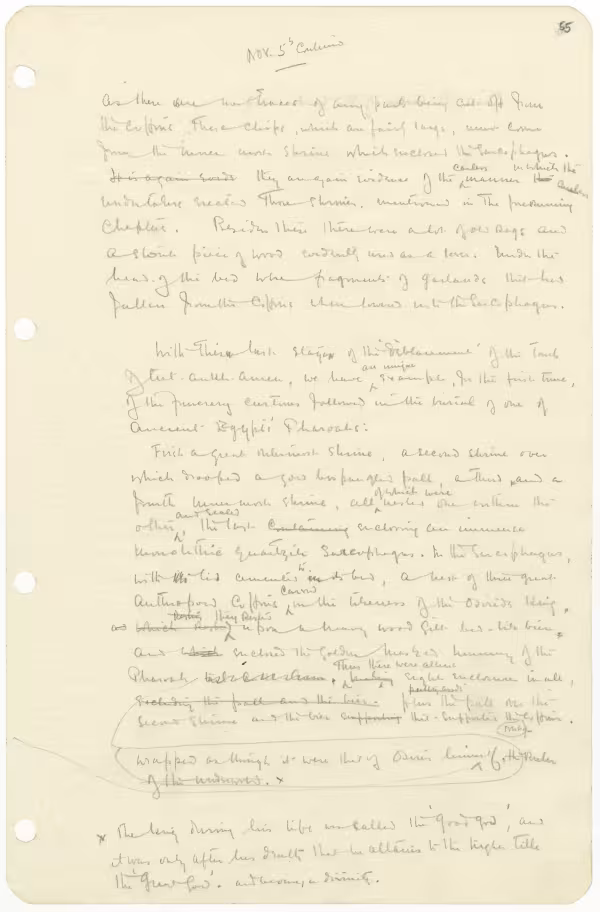 55
Nov. 5th Continued
As there were no traces of any parts being cut off from
the Coffins These chips, which are fairly large, must come
from the inner most shrine which enclosed the Sarcophagus.
careless in which the
they are again evidence of the manner
undertakers erected those shrines, mentioned in the preceding
Chapter. Besides these there were a lot of old rags and
a stout piece of wood evidently used as a lever. Under the
head of the bed were fragments of garlands that had
fallen from the Coffins when lowered into the Sarcophagus.
With these last stages of the 'Déblaiement' of the Tomb
an unique
of Tut.ankh.Amen, we have example, for the first time,
of the funerary customs followed in the burial of one of
ancient Egypt's Pharoahs:
First a great outermost shrine, a second shrine over
which drooped a gold bespangled pall, a third and a
of which were
fourth innermost shrine, all nested one within the
and sealed
other, the last containing enclosing an immense
monolithic quartzite Sarcophagus. In the Sarcophagus,
with its lid cemented to its bed, a nest of three great
carved
anthropoid Coffins in the likeness of the Osiride King,
they rested
which rested upon a heavy wood gilt bed-like bier,
and which enclosed the golden masked mummy of the
Thus there were
Pharoah making eight enclosures in all,
excluding the pall and the bier. plus the pall over the
second shrine and the bier supporting that supported the Coffins.
wrapped as though it were that of Osiris himself, the Ruler
of the underworld. x
x The King during his life was called the 'Good God', and
it was only after his death that he attains to the higher title
the 'Great God'. and become a divinity.